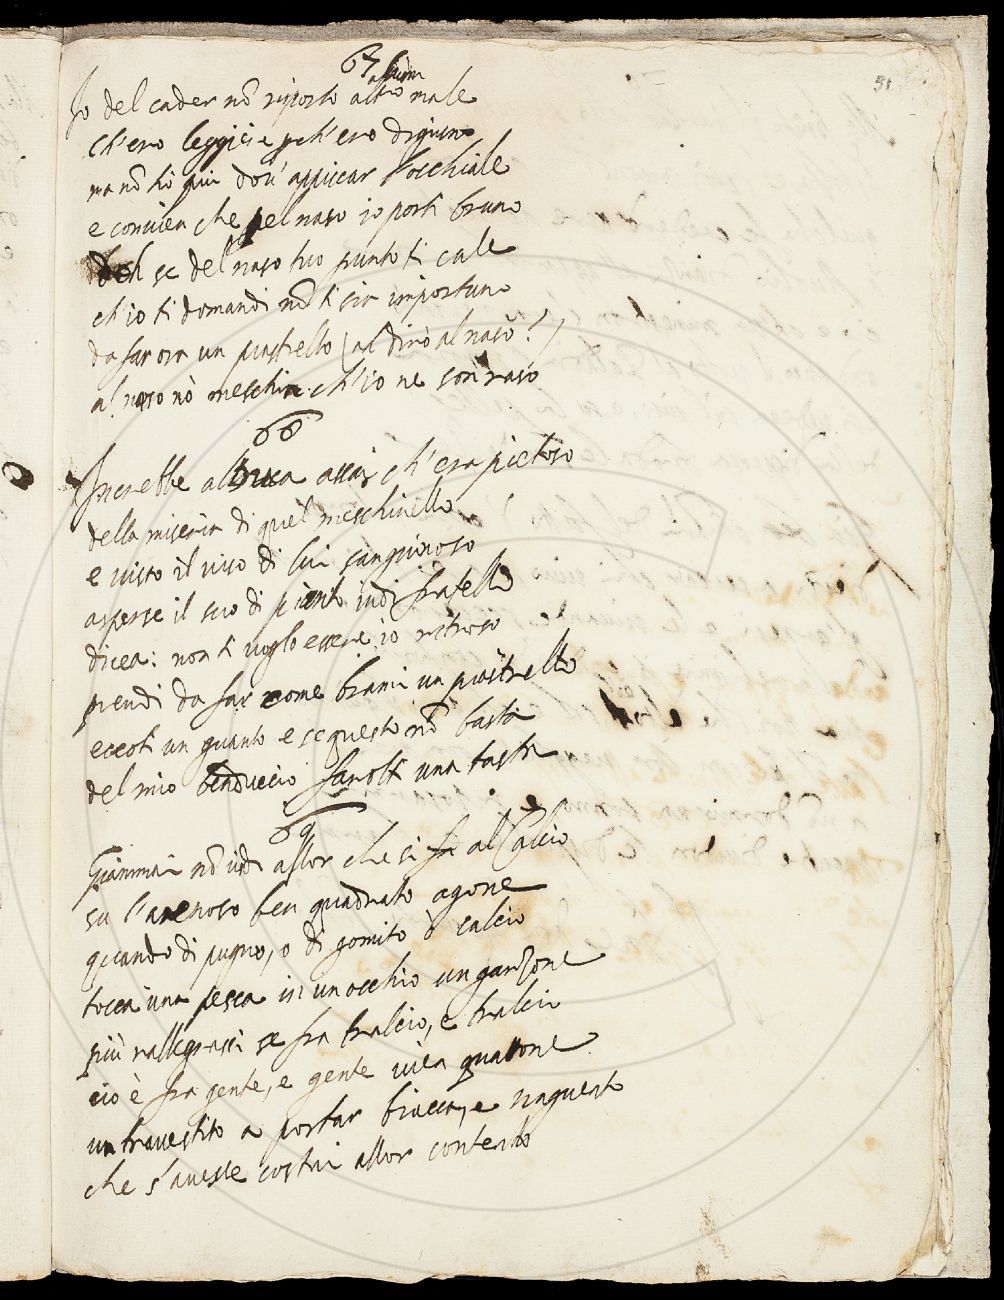 51
67
alcun
Io del cader nõ riporto altro male
ch'ero leggiero e ch'ero digiuno
ma nõ hò più dov' appiccar l'occhiale
e convien che pel naso io porti bruno
deh se del naso tuo punto ti cale
ch'io ti domandi nõ ti sia importuno
da far ora un piastrello (al dirò al naso?)
al naso nò meschin ch'io ne son raso
68
Increbbe al Duca assai ch'era pietoso
della miseria di quel meschinello
e visto il viso di lui sanguinoso
asperse il suo di pianto indi fratello
dicea: non ti voglo essere io ritroso
prendi da far come brami un piastrello
eccoti un guanto e se questo nõ basta
del mio benduccio faroti una tasta
69
Giammai nõ vidi allor che si fa al Calcio
su l'arenoso ben quadrato agone
quando di pugno, o di gomito ò calcio
tocca una pesca in un occhio un garzone
più rallegrarsi se fra tralcio, e tralcio
cio è fra gente, e gente vien quattone
un travestito a portar biacca, e unguento
che s'avesse costui allor contento